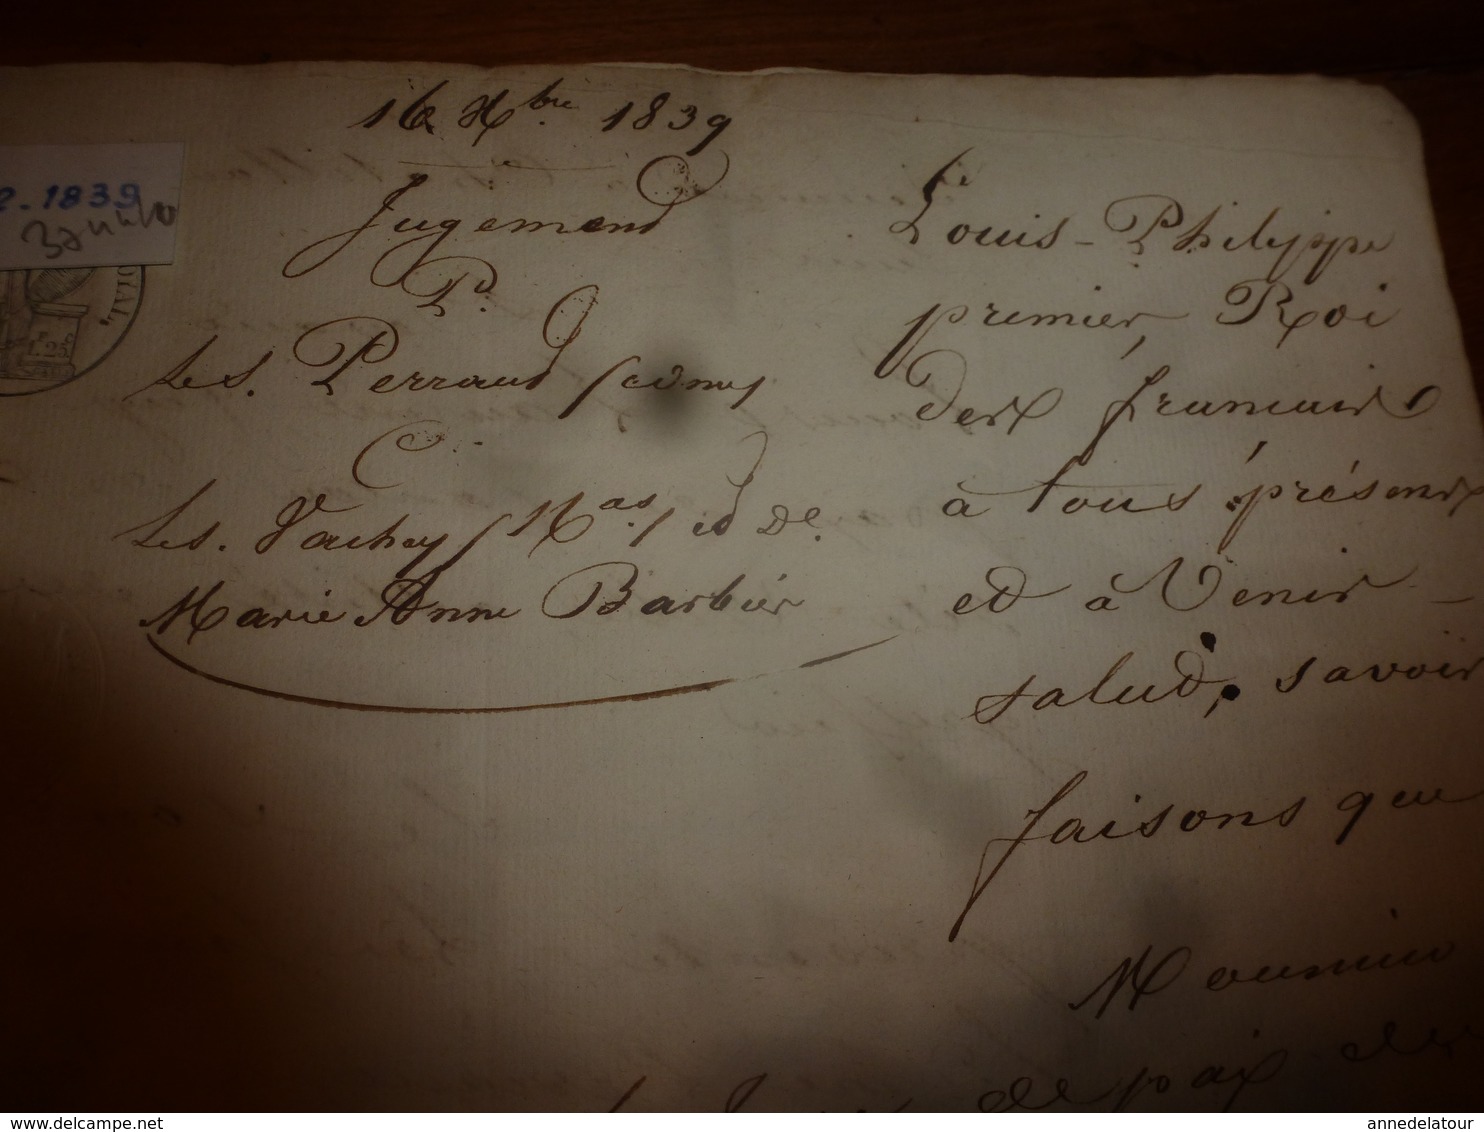 16 Xbre 1839
2-1839
Jugement
Pr.
Les. Perraud
C
Les. Vachey / Nas / et De.
Marie Anne Barbier
Louis-Philippe
premier, Roi
des français
à tous présens
et à Venir
salut, savoir
faisons que
Monsieur
de paix de
delcampe.net
annedelatour